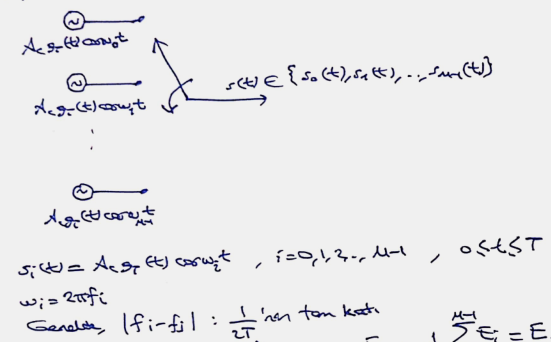 A_c g_T(t) cosω_0t
A_c g_T(t) cosω_1t
s(t) ∈ {s_0(t), s_1(t), ..., s_{M-1}(t)}
A_c g_T(t) cosω_{M-1}t
s_i(t) = A_c g_T(t) cosω_it , i=0,1,2,.., M-1 , 0≤t≤T
ω_i = 2πf_i
Genelde, |f_i-f_j| : 1/2T 'nin tam katı
M-1 ∑ E_i = E